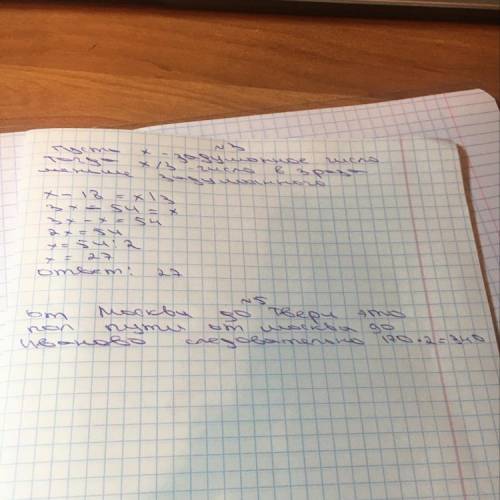 ~3
Пусть x - задуманное число
тогда x/3 - число в 3 раза
меньше задуманного
x - 18 = x/3
3x - 54 = x
3x - x = 54
2x = 54
x = 54 : 2
x = 27
ответ: 27
~5
от Москвы до Твери это
пол пути от москва до
иваново следовательно 170 • 2 = 340